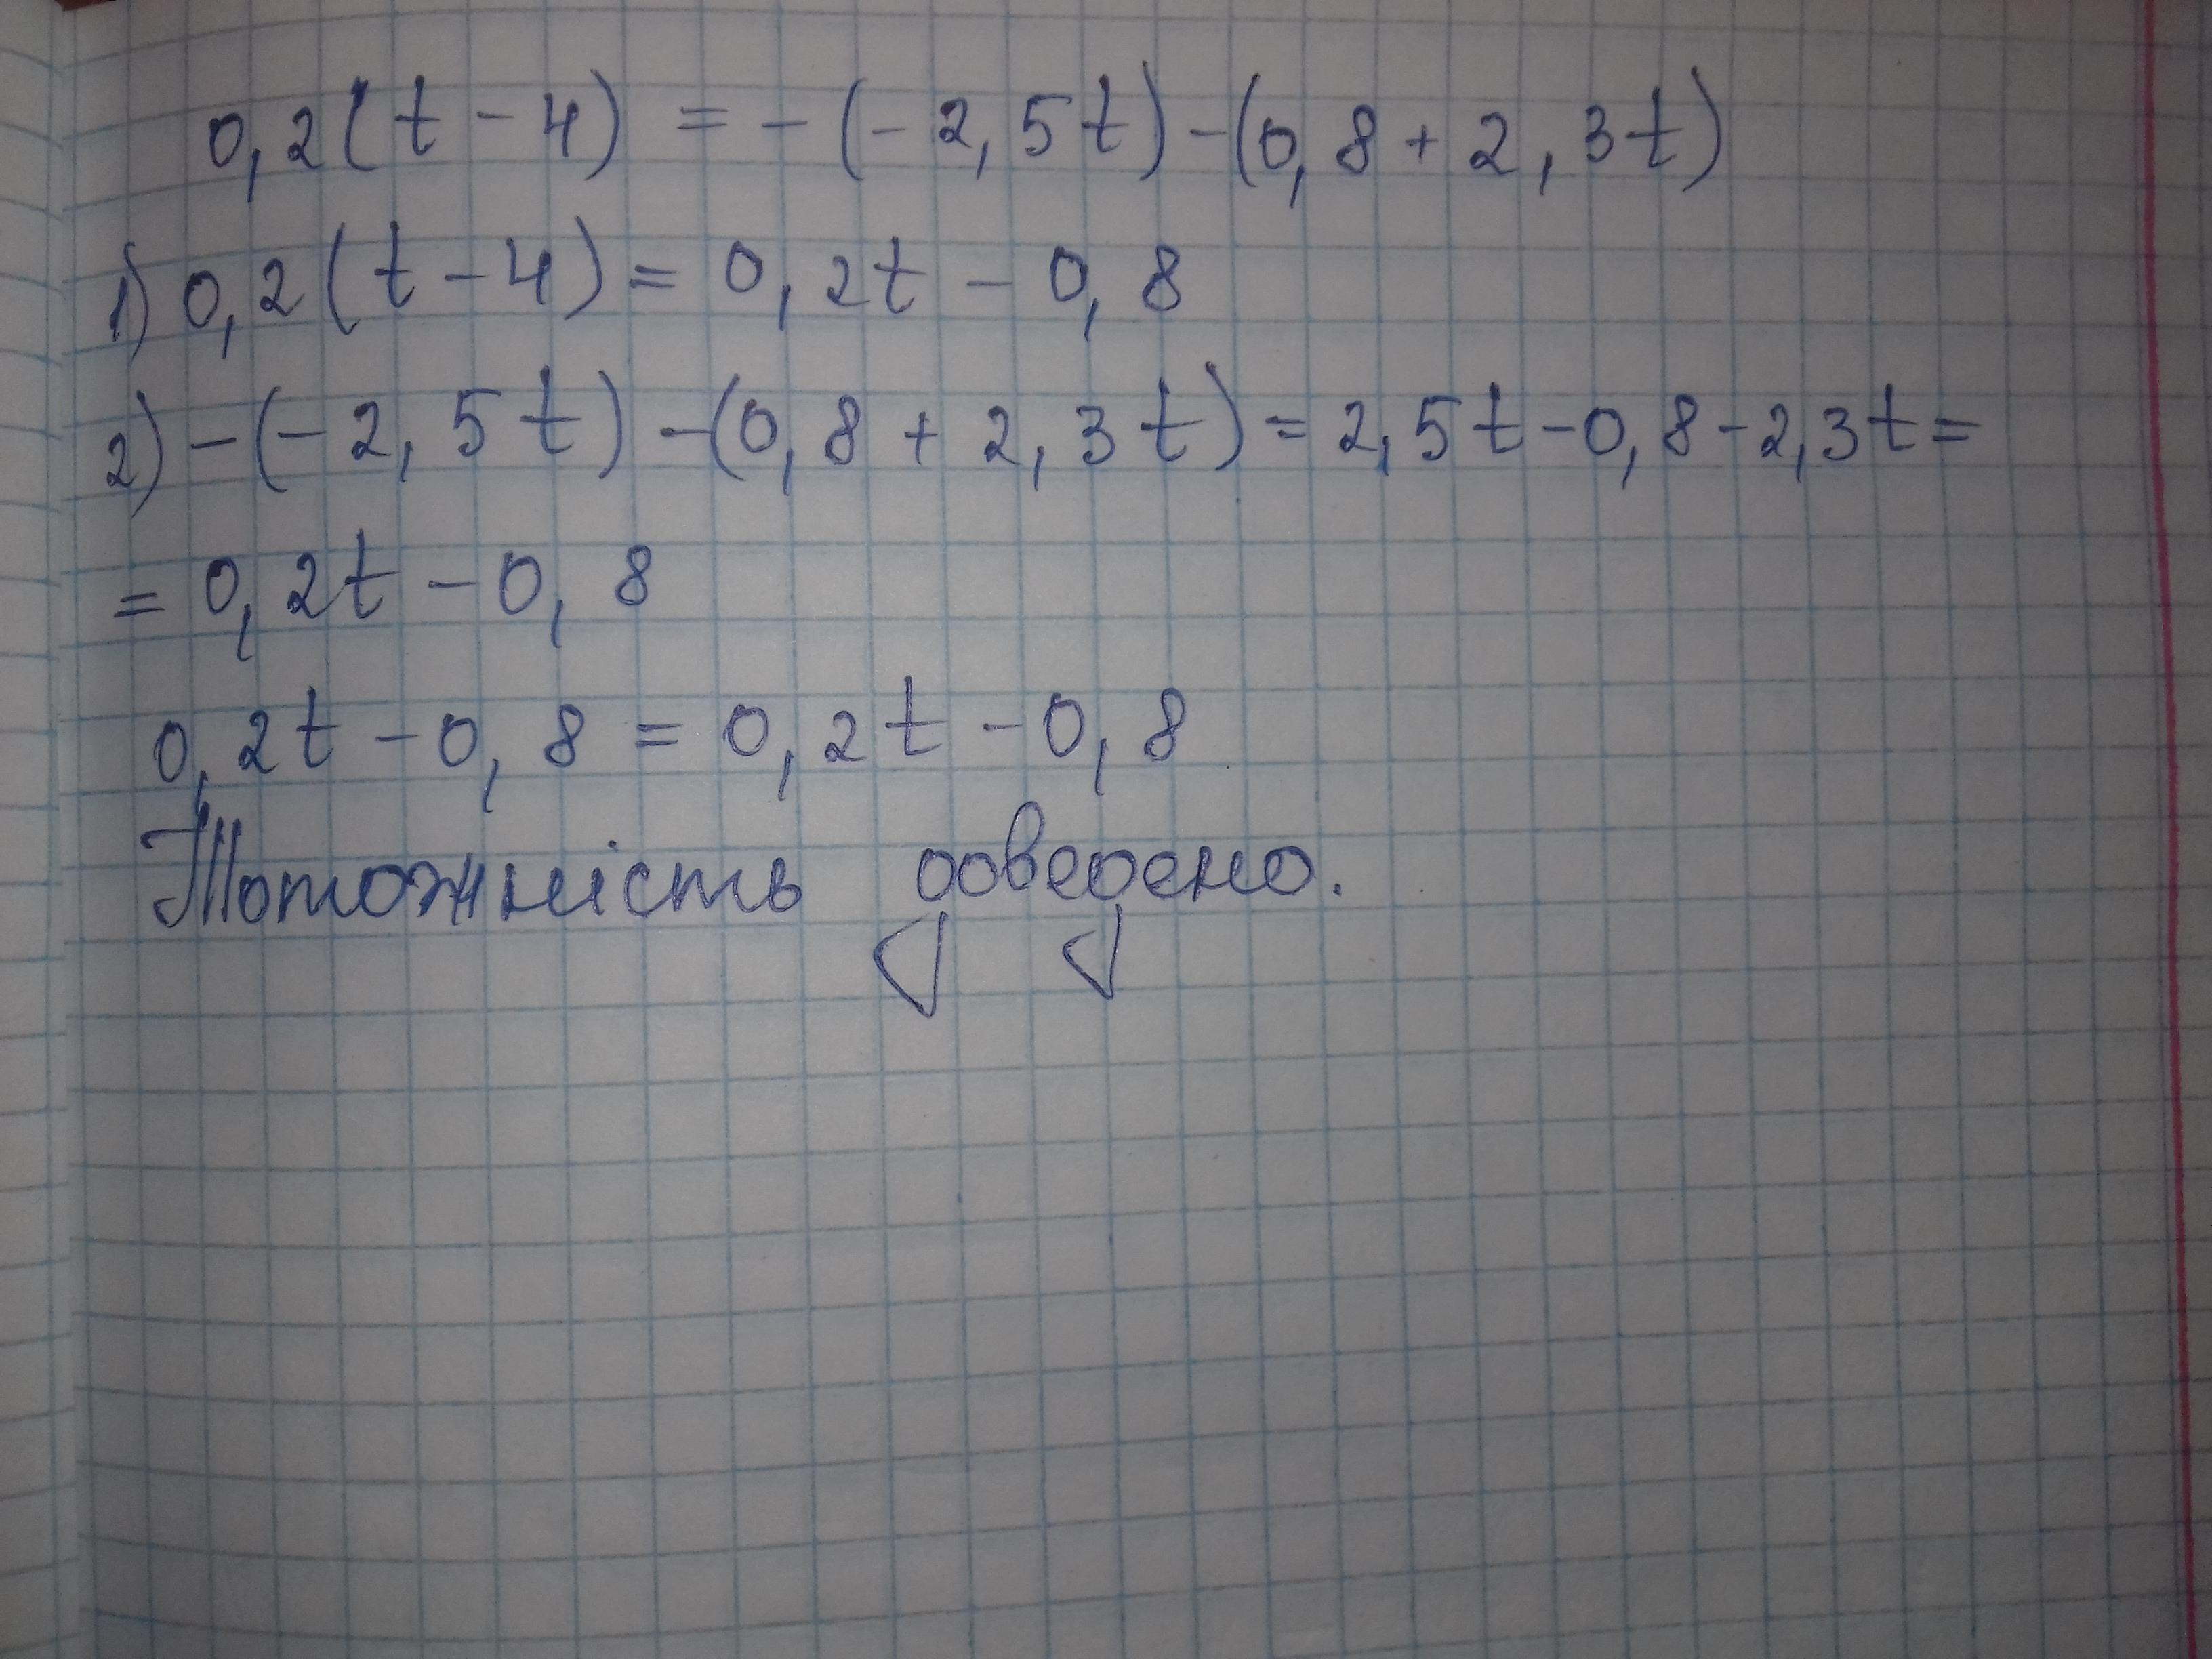 0,2(t-4) = -(-2,5t)-(0,8+2,3t)
1) 0,2(t-4)= 0,2t-0,8
2) -(-2,5t)-(0,8+2,3t)=2,5t-0,8-2,3t=
= 0,2t-0,8
0,2t-0,8=0,2t-0,8
Тотожність доведено.